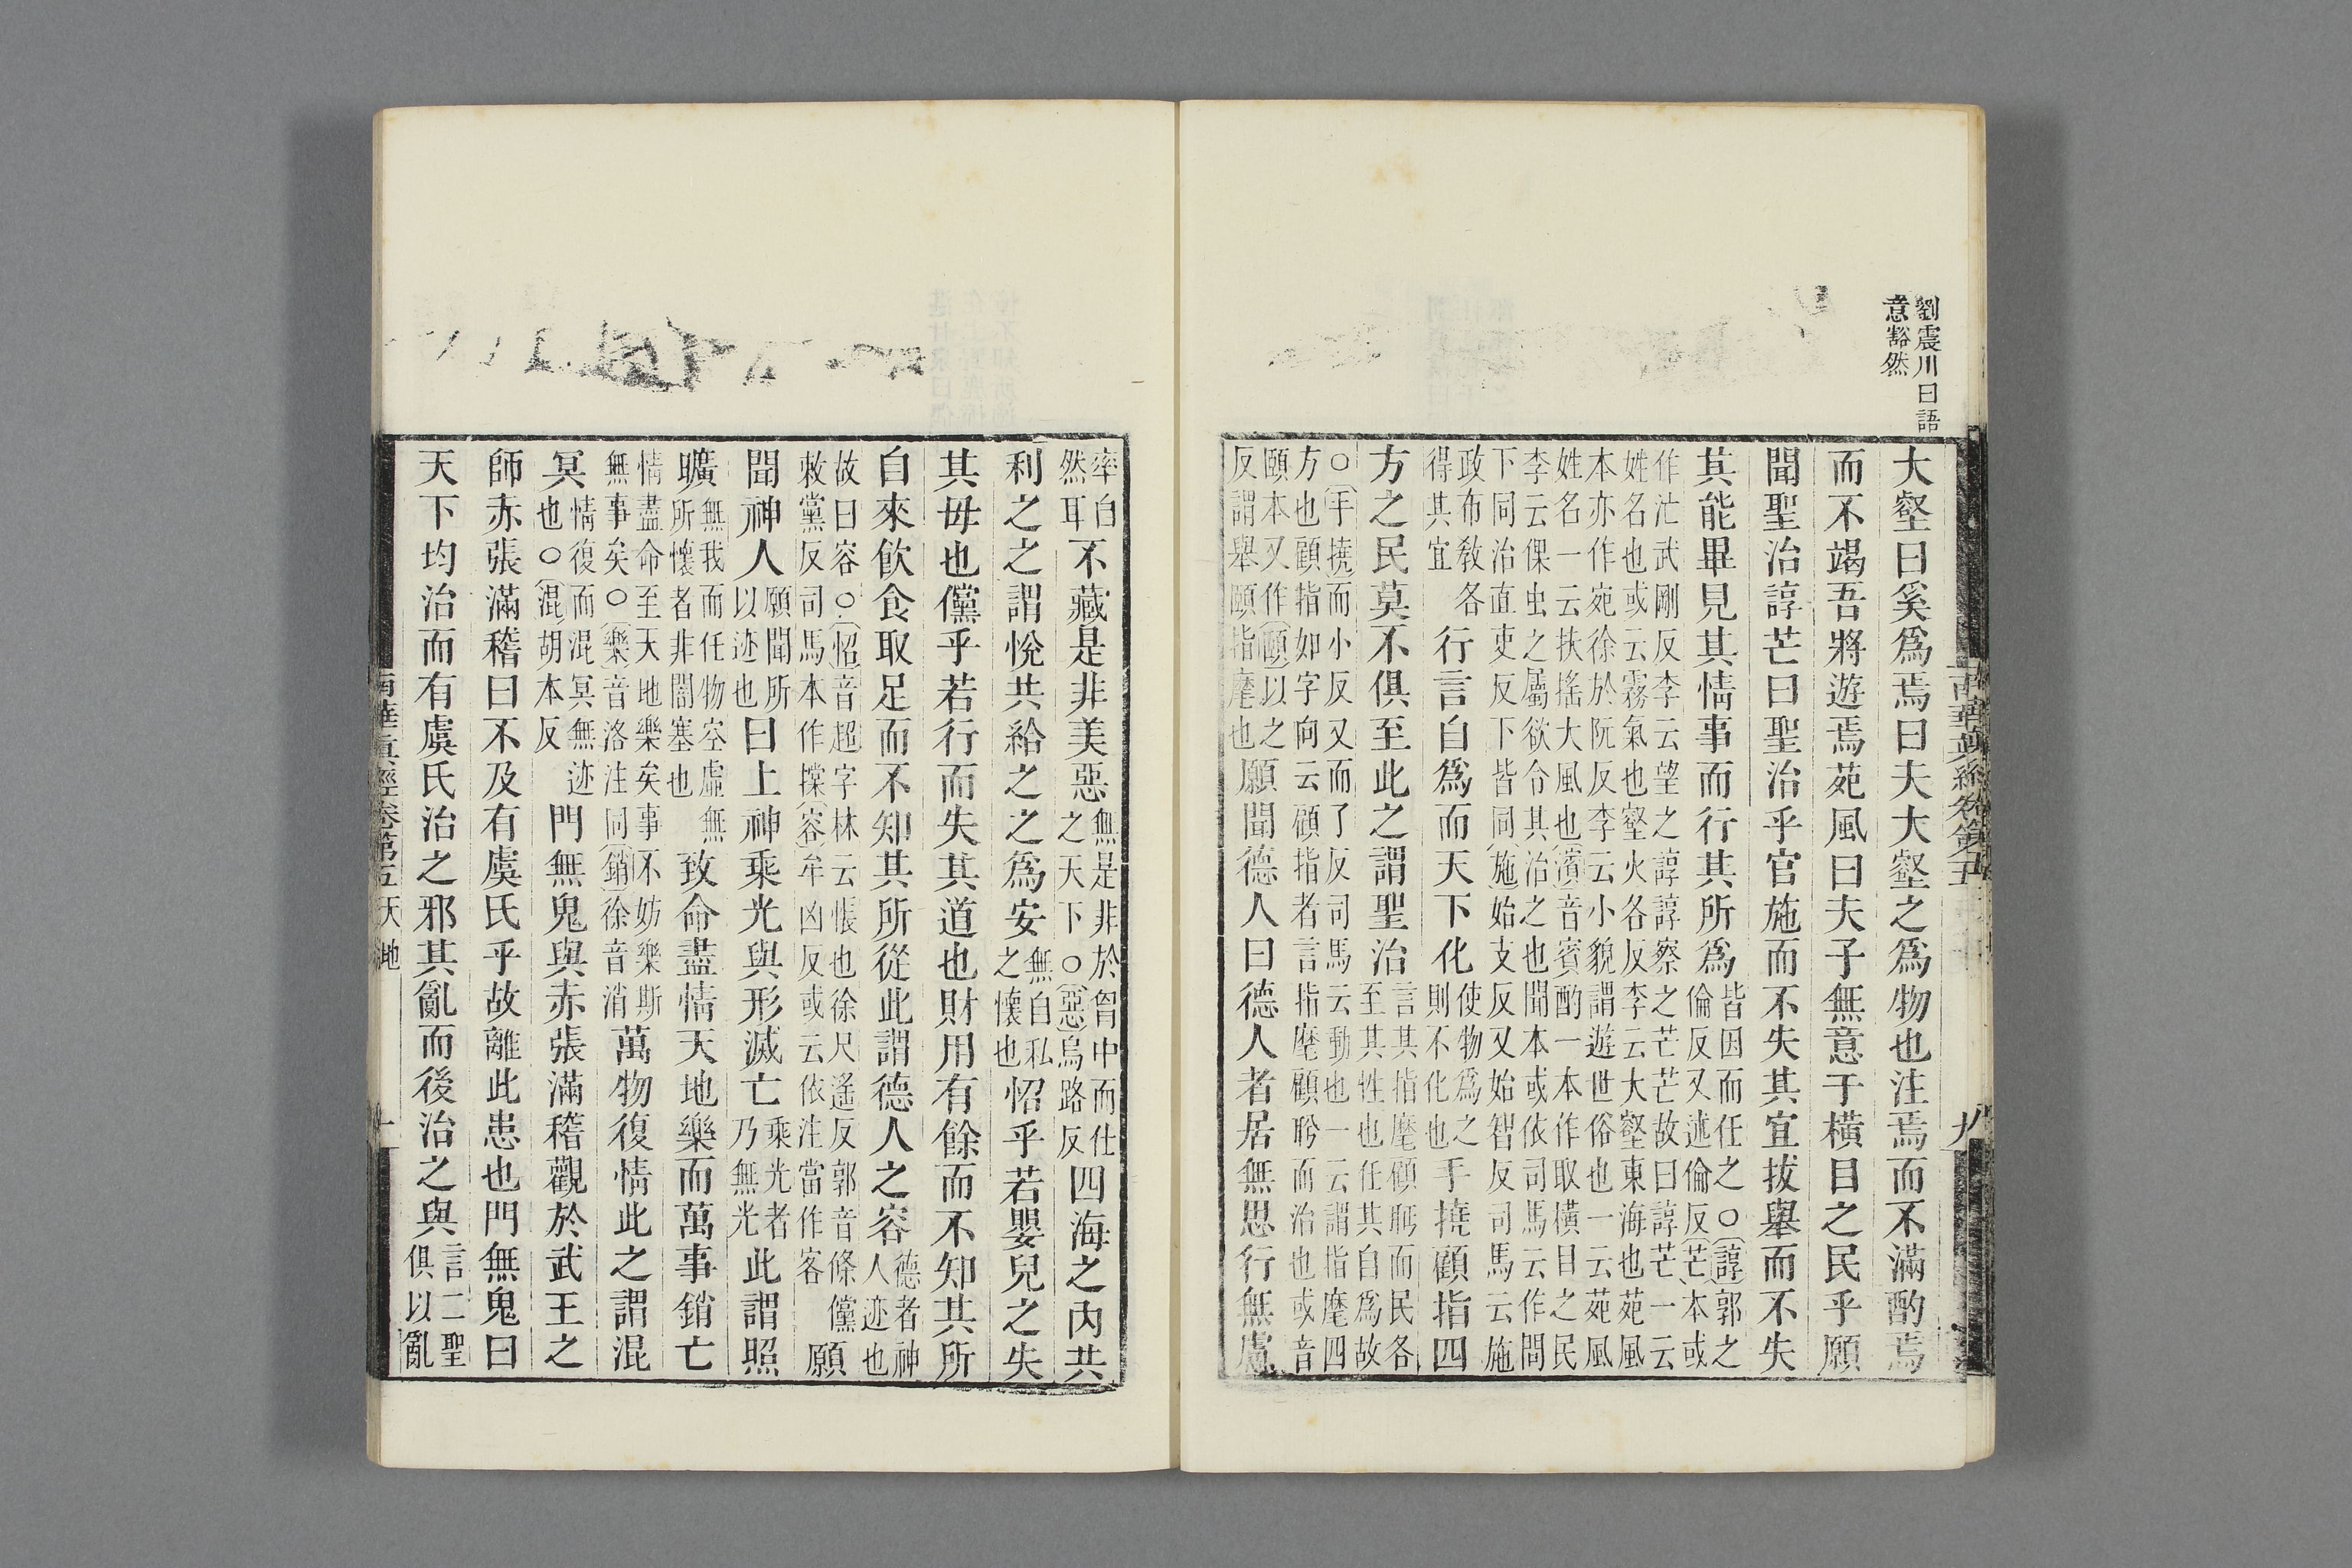 劉震川曰語
意豁然
大壑曰奚爲焉曰夫大壑之爲物也注焉而不滿酌焉
而不竭吾將遊焉苑風曰夫子無意于橫目之民乎願
聞聖治諄芒曰聖治乎官施而不失其宜拔舉而不失
其能畢見其情事而行其所爲皆因而任之○諄郭之倫反又述倫反芒本或
作汒武剛反李云望之諄諄察之芒芒故曰諄芒一云
姓名也或云霧氣也壑火各反李云大壑東海也苑風
本亦作宛徐於阮反李云小貌謂遊世俗也一云苑風
姓名一云扶搖大風也濱音賓酌一本作取橫目之民
李云倮虫之屬欲令其治之也聞本或依司馬云作問
下同治直吏反下皆同施始支反又始智反司馬云施
政布敎各得其宜行言自爲而天下化使物爲之則不化也手撓顧指四
方之民莫不俱至此之謂聖治言其指麾顧眄而民各至其性也任其自爲故
○手撓而小反又而了反司馬云動也一云謂指麾四
方也顧指如字向云顧指者言指麾顧眄而治也或音
頤本又作頤以之
反謂舉頤指麾也願聞德人曰德人者居無思行無慮
南華眞經卷第五
九
率自然耳不藏是非美惡無是非於胷中而任之天下○惡烏路反四海之內共
利之之謂悅共給之之爲安無自私之懷也怊乎若嬰兒之失
其母也儻乎若行而失其道也財用有餘而不知其所
自來飮食取足而不知其所從此謂德人之容德者神人迹也
故曰容○怊音超字林云悵也徐尺遙反郭音條儻
敕黨反司馬本作攩容牟凶反或云依注當作客願
聞神人願聞所以迹也曰上神乘光與形滅亡乘光者乃無光此謂照
曠無我而任物空虛無所懷者非闇塞也致命盡情天地樂而萬事銷亡
情盡命至天地樂矣事不妨樂斯
無事矣○樂音洛注同銷徐音消萬物復情此之謂混
冥情復而混冥無迹也○混胡本反門無鬼與赤張滿稽觀於武王之
師赤張滿稽曰不及有虞氏乎故離此患也門無鬼曰
天下均治而有虞氏治之邪其亂而後治之與言二聖俱以亂
南華眞經卷第五 天地